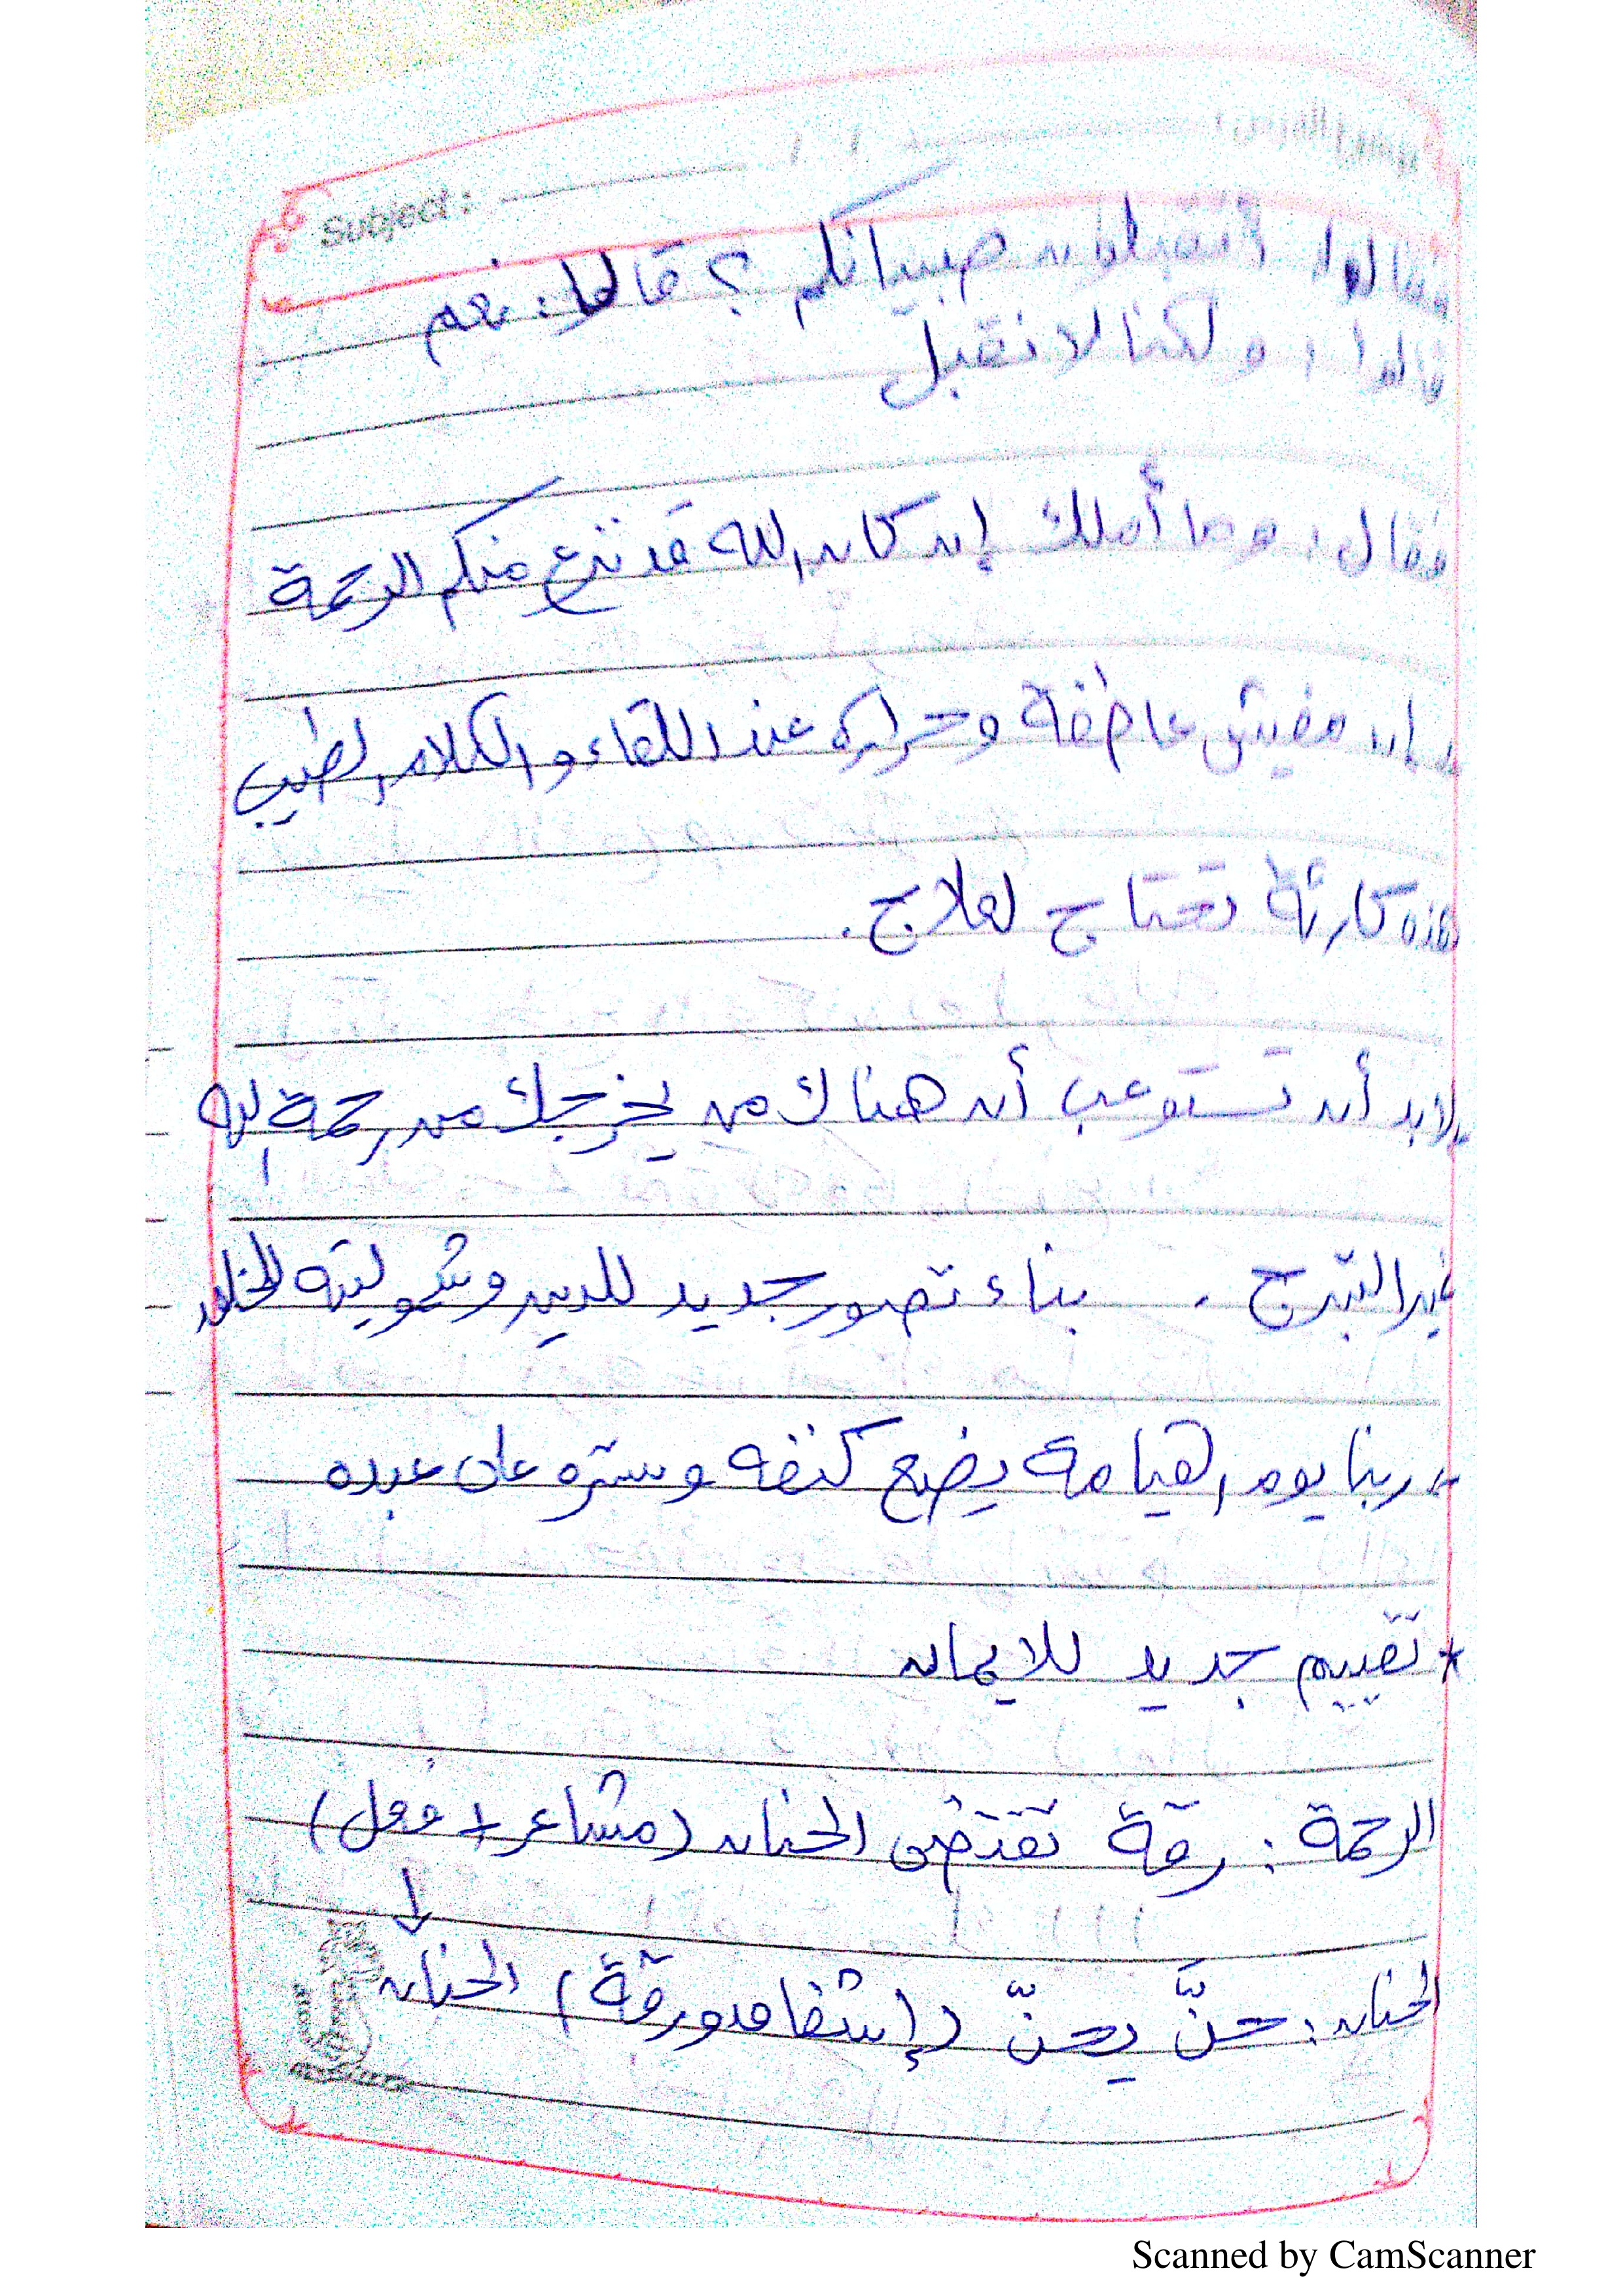 Subject :
فقالوا أتقبلون صبيانكم ؟ قالوا: نعم
قالوا : ولكنا لا نقبل
فقال : وما أملك إن كان الله قد نزع منكم الرحمة
مفيش عاطفة وحرارة عند اللقاء و الكلام الطيب
هذه كارثة تحتاج لعلاج .
لابد أن تستوعب أن هناك من يخرجك من رحمة الله
غير التبرج . بناء تصور جديد للدين وشموليته
ربنا يوم القيامة يضع كنفه وستره على عبده
* تقييم جديد للايمان
الرحمة : رقة تقتضى الحنان (مشاعر + فعل)
الحنان : حنَّ يحنّ (إشفاق ورقة) الحنان
Scanned by CamScanner